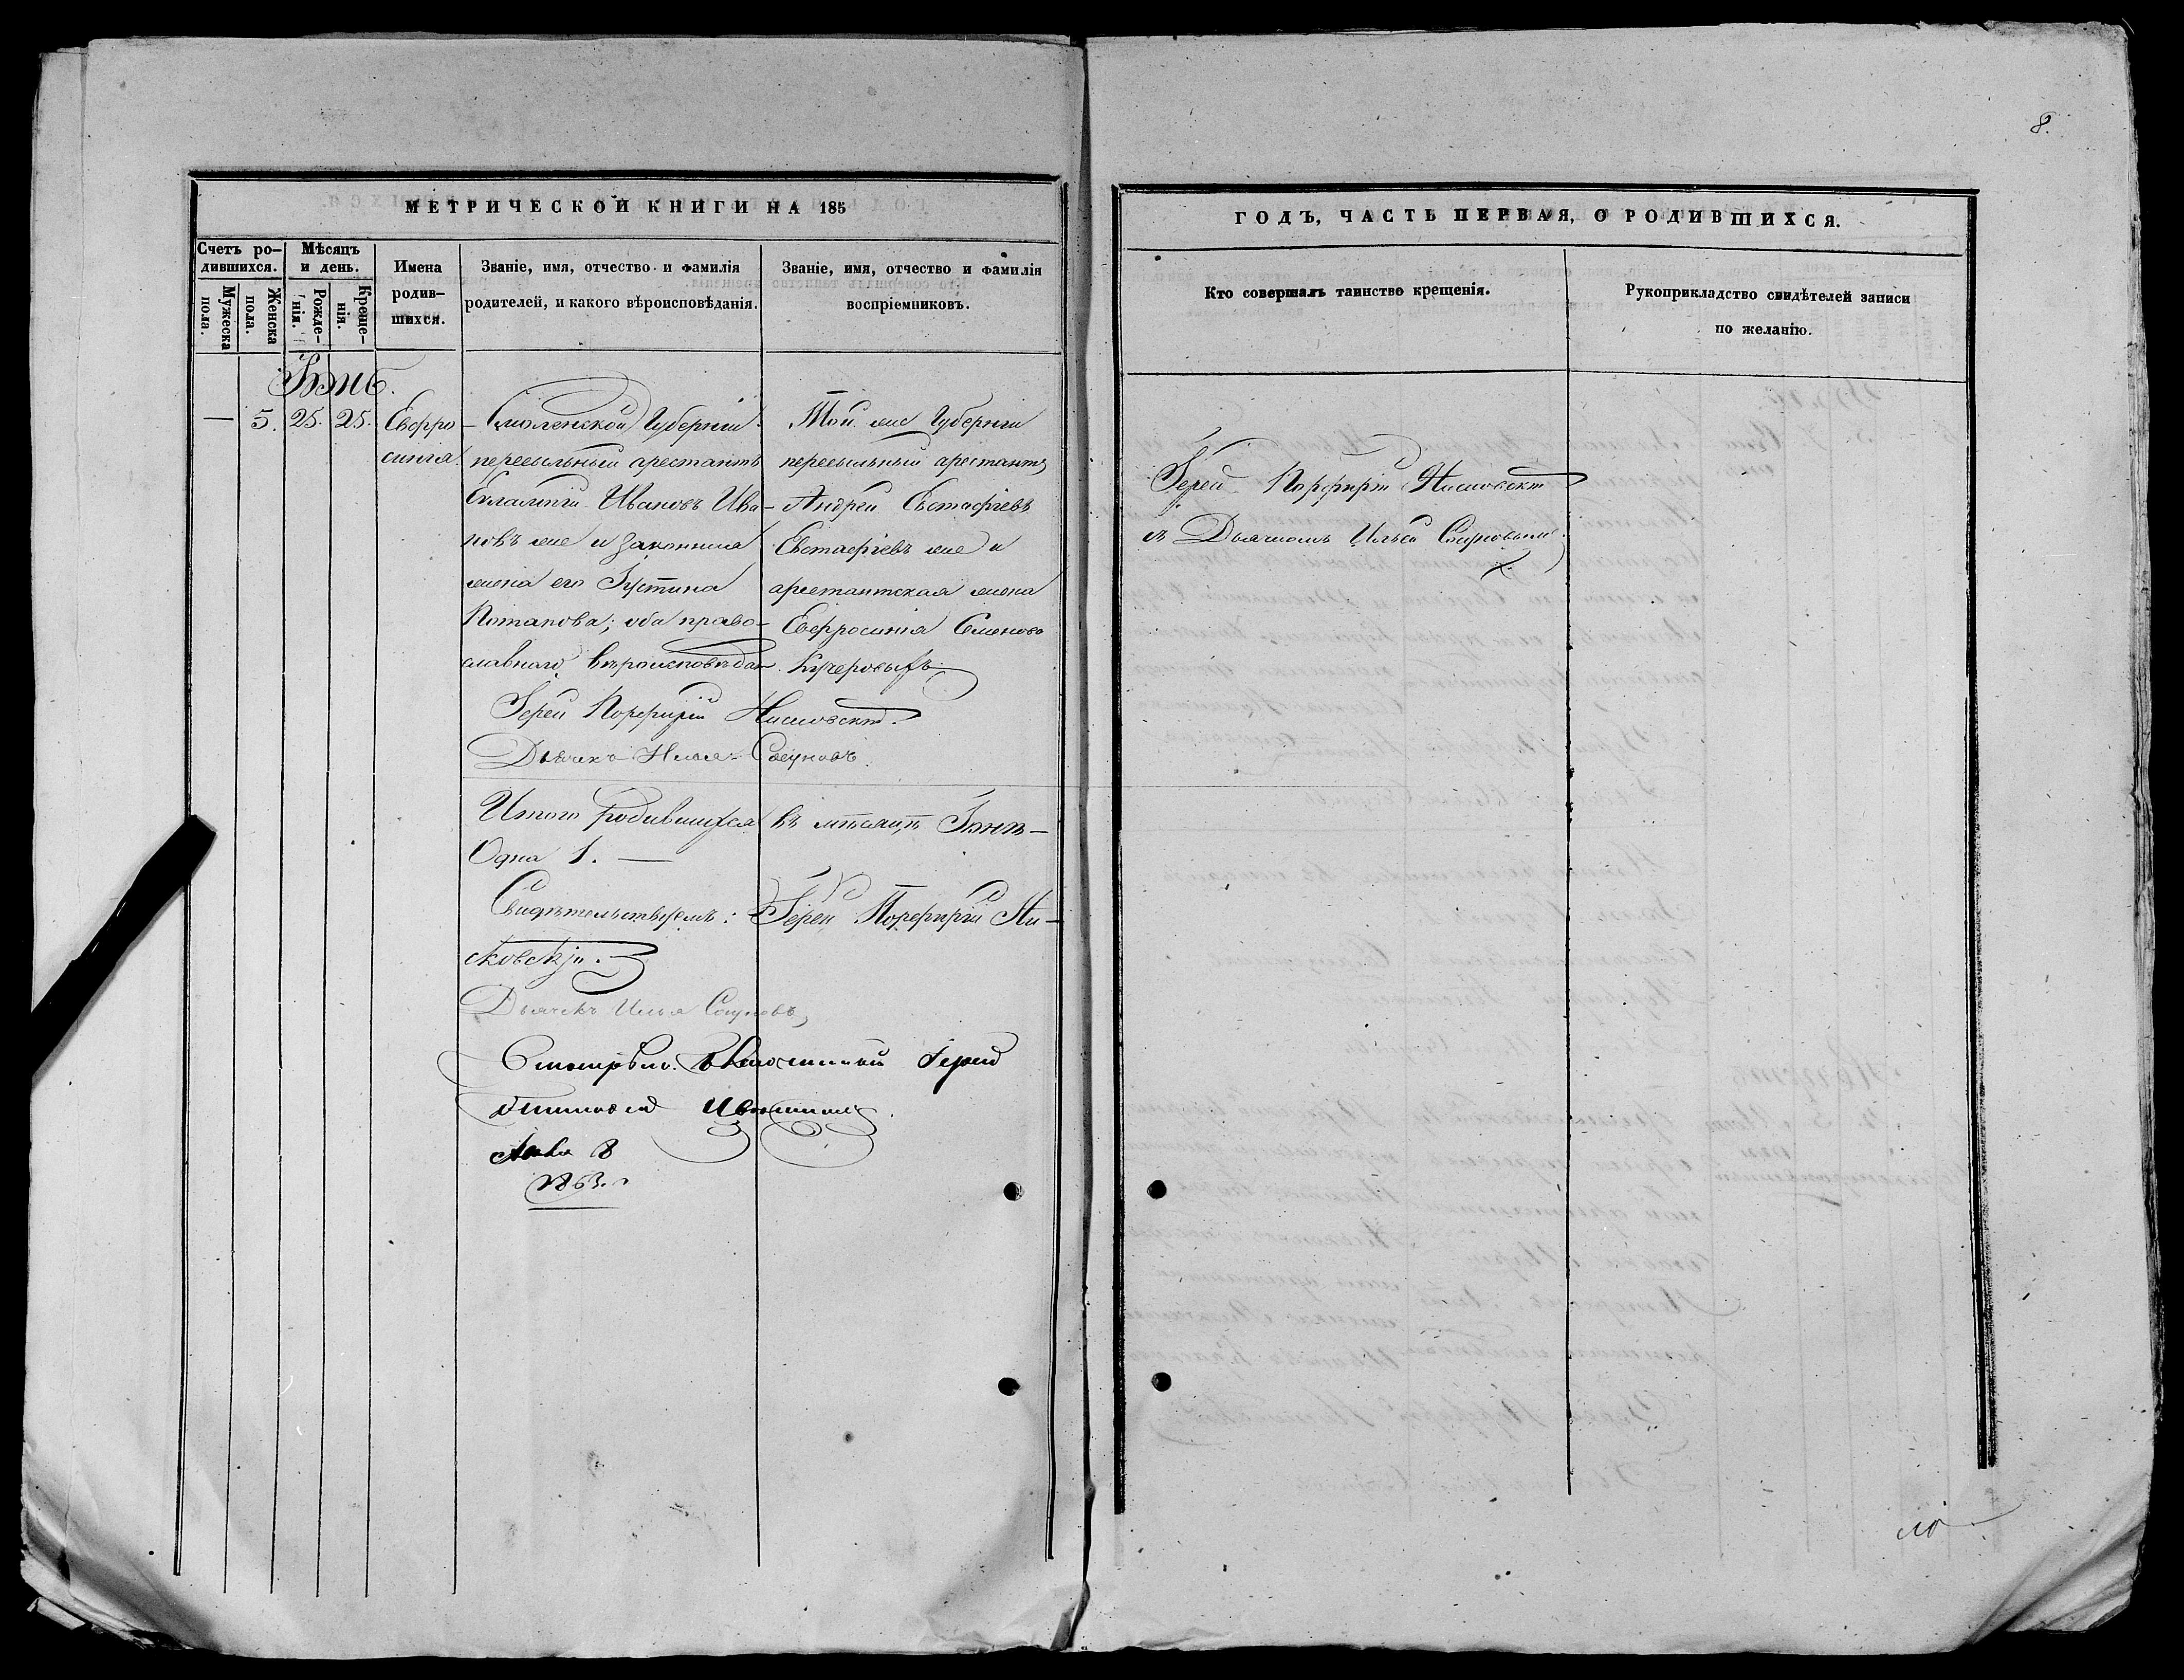 8.
МЕТРИЧЕСКОЙ КНИГИ НА 185
ГОДЪ, ЧАСТЬ ПЕРВАЯ, О РОДИВШИХСЯ.
Счетъ ро-
дившихся.
Мужеска
пола.
Женска
пола.
Мѣсяцъ
и день.
Рожде-
нія.
Креще-
нія.
Имена
родив-
шихся.
Званіе, имя, отчество и фамилія
родителей, и какого вѣроисповѣданія.
Званіе, имя, отчество и фамилія
воспріемниковъ.
Кто совершалъ таинство крещенія.
Рукоприкладство свидѣтелей записи
по желанію.
— 5. 25. 25.
Евфро
синія.
Смоленской Губерніи
пересыльный арестантъ
Ивановъ Ива-
новъ же и законная
жена его Іустина
Потапова; оба право-
славнаго вѣроисповѣдан.
Той же Губерніи
пересыльный арестантъ
Андрей Евстафіевъ
Евстафіевъ же и
арестантская жена
Евфросинія Семенова
Кучеровыхъ
Іерей Порфирій
съ Дьячкомъ Ильею
Іерей Порфирій
Дьячекъ Илья
Итого родившихся въ мѣсяцѣ Іюнѣ —
Одна 1. —
Свидѣтельствуемъ: Іерей Порфирій
Дьячекъ Илья
Смотрѣлъ Іерей
18
1863.